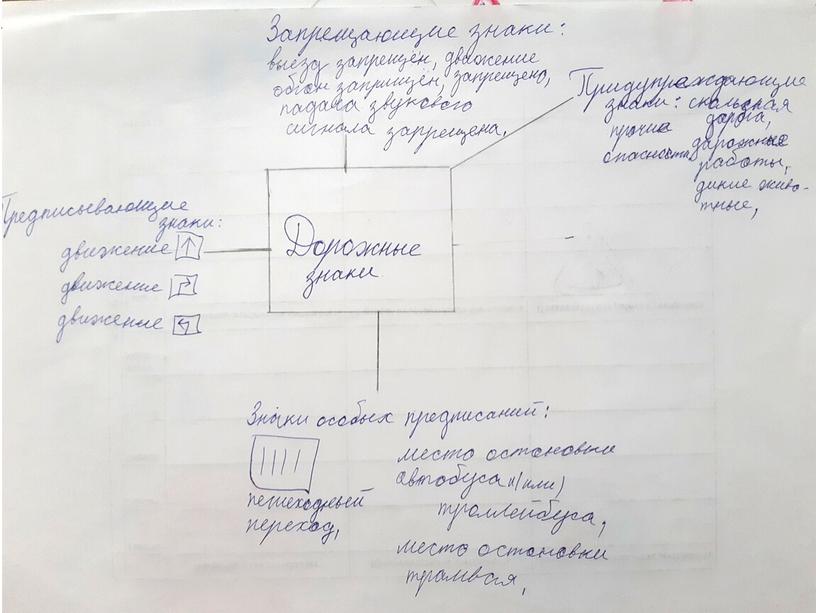 Запрещающие знаки:
выезд запрещён, движение
обгон заприщён, запрещено,
падача звукового
сигнала запрещена,
Придупреждающие
знаки: скальская
дорога,
прочие
опасности
дарожные
работы,
дикие живо-
тные,
Предписывающие
знаки:
движение
движение
движение
Дорожные
знаки
Значки особых предписаний:
пешеходный
переход,
место остановки
автобуса и (или)
троллейбуса,
место остановки
трамвая,